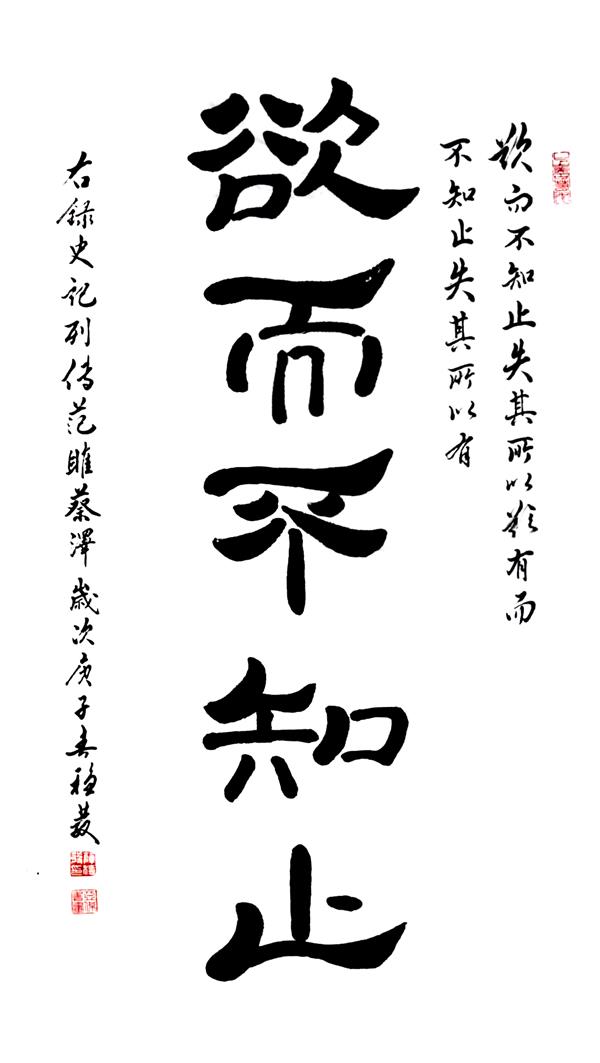 欲而不知止失其所以欲有而
不知止失其所以有
欲而不知止
右録史記列傳范雎蔡澤歲次庚子春穩發